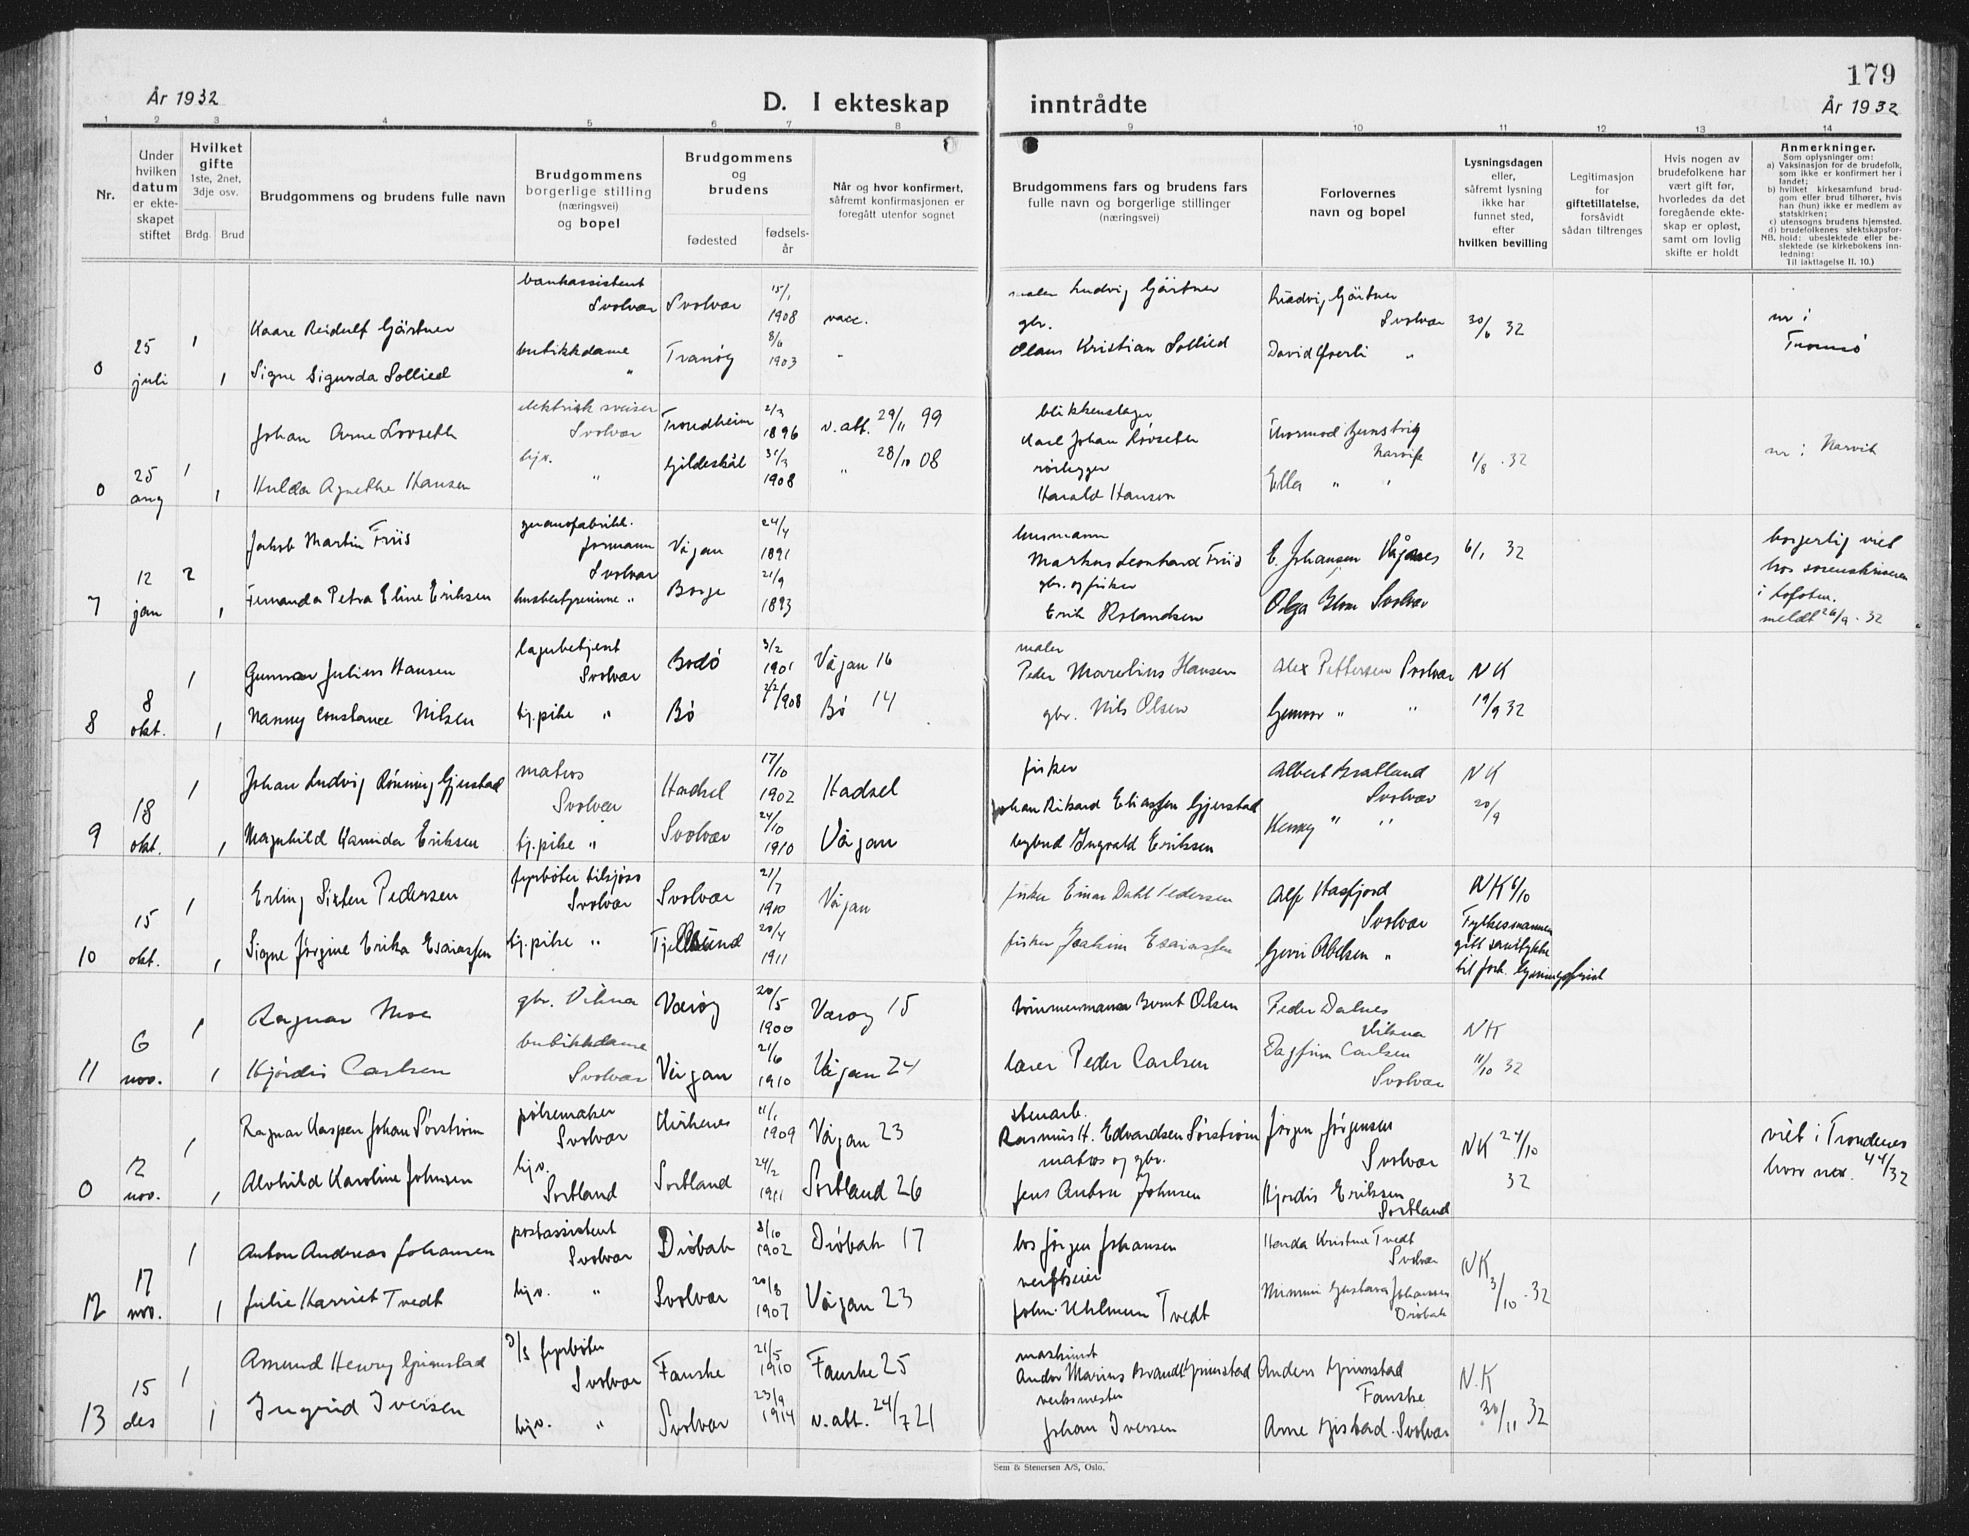 179
År 1932
D. I ekteskap inntrådte
År 1932
1 2 3 4 5 6 7 8 9 10 11 12 13 14
Nr.
Under hvilken datum er ekteskapet stiftet
Hvilket gifte 1ste, 2net, 3dje osv.
Brdg. Brud
Brudgommens og brudens fulle navn
Brudgommens borgerlige stilling (næringsvei) og bopel
Brudgommens og brudens
fødested
fødselsår
Når og hvor konfirmert, såfremt konfirmasjonen er foregått utenfor sognet
Brudgommens fars og brudens fars fulle navn og borgerlige stillinger (næringsvei)
Forlovernes navn og bopel
Lysningsdagen eller, såfremt lysning ikke har funnet sted, efter hvilken bevilling
Legitimasjon for giftetillatelse, forsåvidt sådan tiltrenges
Hvis nogen av brudefolkene har vært gift før, hvorledes da det foregående ekteskap er opløst, samt om lovlig skifte er holdt
Anmerkninger.
Som oplysninger om:
a) Vaksinasjon for de brudefolk, som ikke er konfirmert her i landet;
b) hvilket kirkesamfund brudgom eller brud tilhører, hvis han (hun) ikke er medlem av statskirken;
c) utensogns brudens hjemsted.
d) brudefolkenes slektskapsforhold: ubeslektede eller beslektede (se kirkebokens innledning:
NB.
Til iakttagelse II. 10.)
0 25 juli 1 1
Kaare Reidulf Gärtner
bankassistent Svolvær Svolvær 15/1 1908 vacc.
maler Ludvig Gärtner
Ludvig Gärtner Svolvær 30/6 32
Signe Sigurda Sollied
butikkdame " Tranøy 8/6 1903 "
gbr. Olaus Kristian Sollied
David Øverli "
Tromsø
0 25 aug 1 1
Johan Arne Lovseth
elektrisk sveiser Svolvær Trondheim 2/3 1896 v. att. 29/11 99
blikkenslager Karl Johan Lovseth
Narvik 1/8 . 32
Hulda Agnethe Hansen
hjv. " Gildeskål 31/3 1908 " 28/10 08
rørlegger Harald Hansen
Ella " "
Narvik
7 12 jan 2 1
Jakob Martin Friis
guanofabrikk. formann Svolvær Vågan 24/4 1891
husmann Markus Leonhard Friis
E. Johansen 6/1 32
Fernanda Petra Eline Eriksen
husbestyrerinne " Borge 21/9 1893
gbr. og fisker Erik Rolandsen
Olga Svolvær
borgerlig viet hos sorenskriveren i Lofoten. meldt 26/9 . 32
8 8 okt. 1 1
Gunnar Julius Hansen
lagerbetjent Svolvær Bodø 3/2 1901 Vågan 16
maler Peder Marelius Hansen
Alex Pettersen Svolvær NK
Nanny Constance Nilsen
tj.pike " Bø 22/2 1908 Bø 14
gbr. Nils Olsen
Gunvor " " 19/9 32
9 18 okt. 1 1
Johan Ludvig Rønning Gjerstad
matros Svolvær Hadsel 17/10 1902 Hadsel
fisker Johan Rikard Eliassen Gjerstad
Albert Bratland Svolvær NK 20/9
Magnhild Hamida Eriksen
tj.pike " Svolvær 24/10 1910 Vågan
bybud Ingvald Eriksen
Kenny " "
10 15 okt. 1 1
Erling Sixten Pedersen
fyrbøter tilsjøss Svolvær Svolvær 21/7 1910 Vågan
fisker Einar Dahl Pedersen
Alf Hasfjord Svolvær NK 6/10
Signe Jørgine Erika Esaiassen
tj.pike " Tjeldsund 20/4 1911
fisker Joakim Esaiassen
Abelsen "
Fylkesmannen gitt samtykke til fork. lysningsfrist
11 6 nov. 1 1
Ragnar Moe
gbr. Vikna Værøy 20/5 1900 Værøy 15
tømmermann Bernt Olsen
Peder Dalnes Vikna NK
Hjørdis Carlsen
butikkdame Svolvær Vågan 21/6 1910 Vågan 24
lærer Peder Carlsen
Dagfinn Carlsen Svolvær 11/10 32
0 12 nov. 1 1
Ragnar Kasper Johan Sørstrøm
pølsemaker Svolvær Kirkenes 11/1 1909 Vågan 23
stenarb. Rasmus H. Edvardsen Sørstrøm
Jørgen Jørgensen Svolvær NK 24/10 32
Alvhild Karoline Johnsen
hjv. Sortland Sortland 24/2 1911 Sortland 26
matros og gbr. Jens Anton Johnsen
Hjordis Eriksen Sortland
viet i Trondenes hvor nr. 44/32
12 17 nov. 1 1
Anton Andreas Johansen
postassistent Svolvær Drøbak 3/10 1902 Drøbak 17
los Jørgen Johansen
Handa Kristine Tvedt Svolvær NK
Julie Harriet Tvedt
hjv. " Svolvær 20/8 1907 Vågan 23
verftseier John Uhlmann Tvedt
Mimmi Gustava Johansen Drøbak 3/10 . 32
13 15 des 1 1
Amund Henry Grimstad
D/S fyrbøter Svolvær Fauske 21/5 1910 Fauske 25
maskinist Andor Marius Brandt Grimstad
Anders Grimstad Fauske N.K
Ingrid Iversen
hjv. " Svolvær 23/9 1914 v. att. 24/7 21
verksmester Johan Iversen
Arne Gjistad . Svolvær 30/11 32
Sem & Stenersen A/S, Oslo.